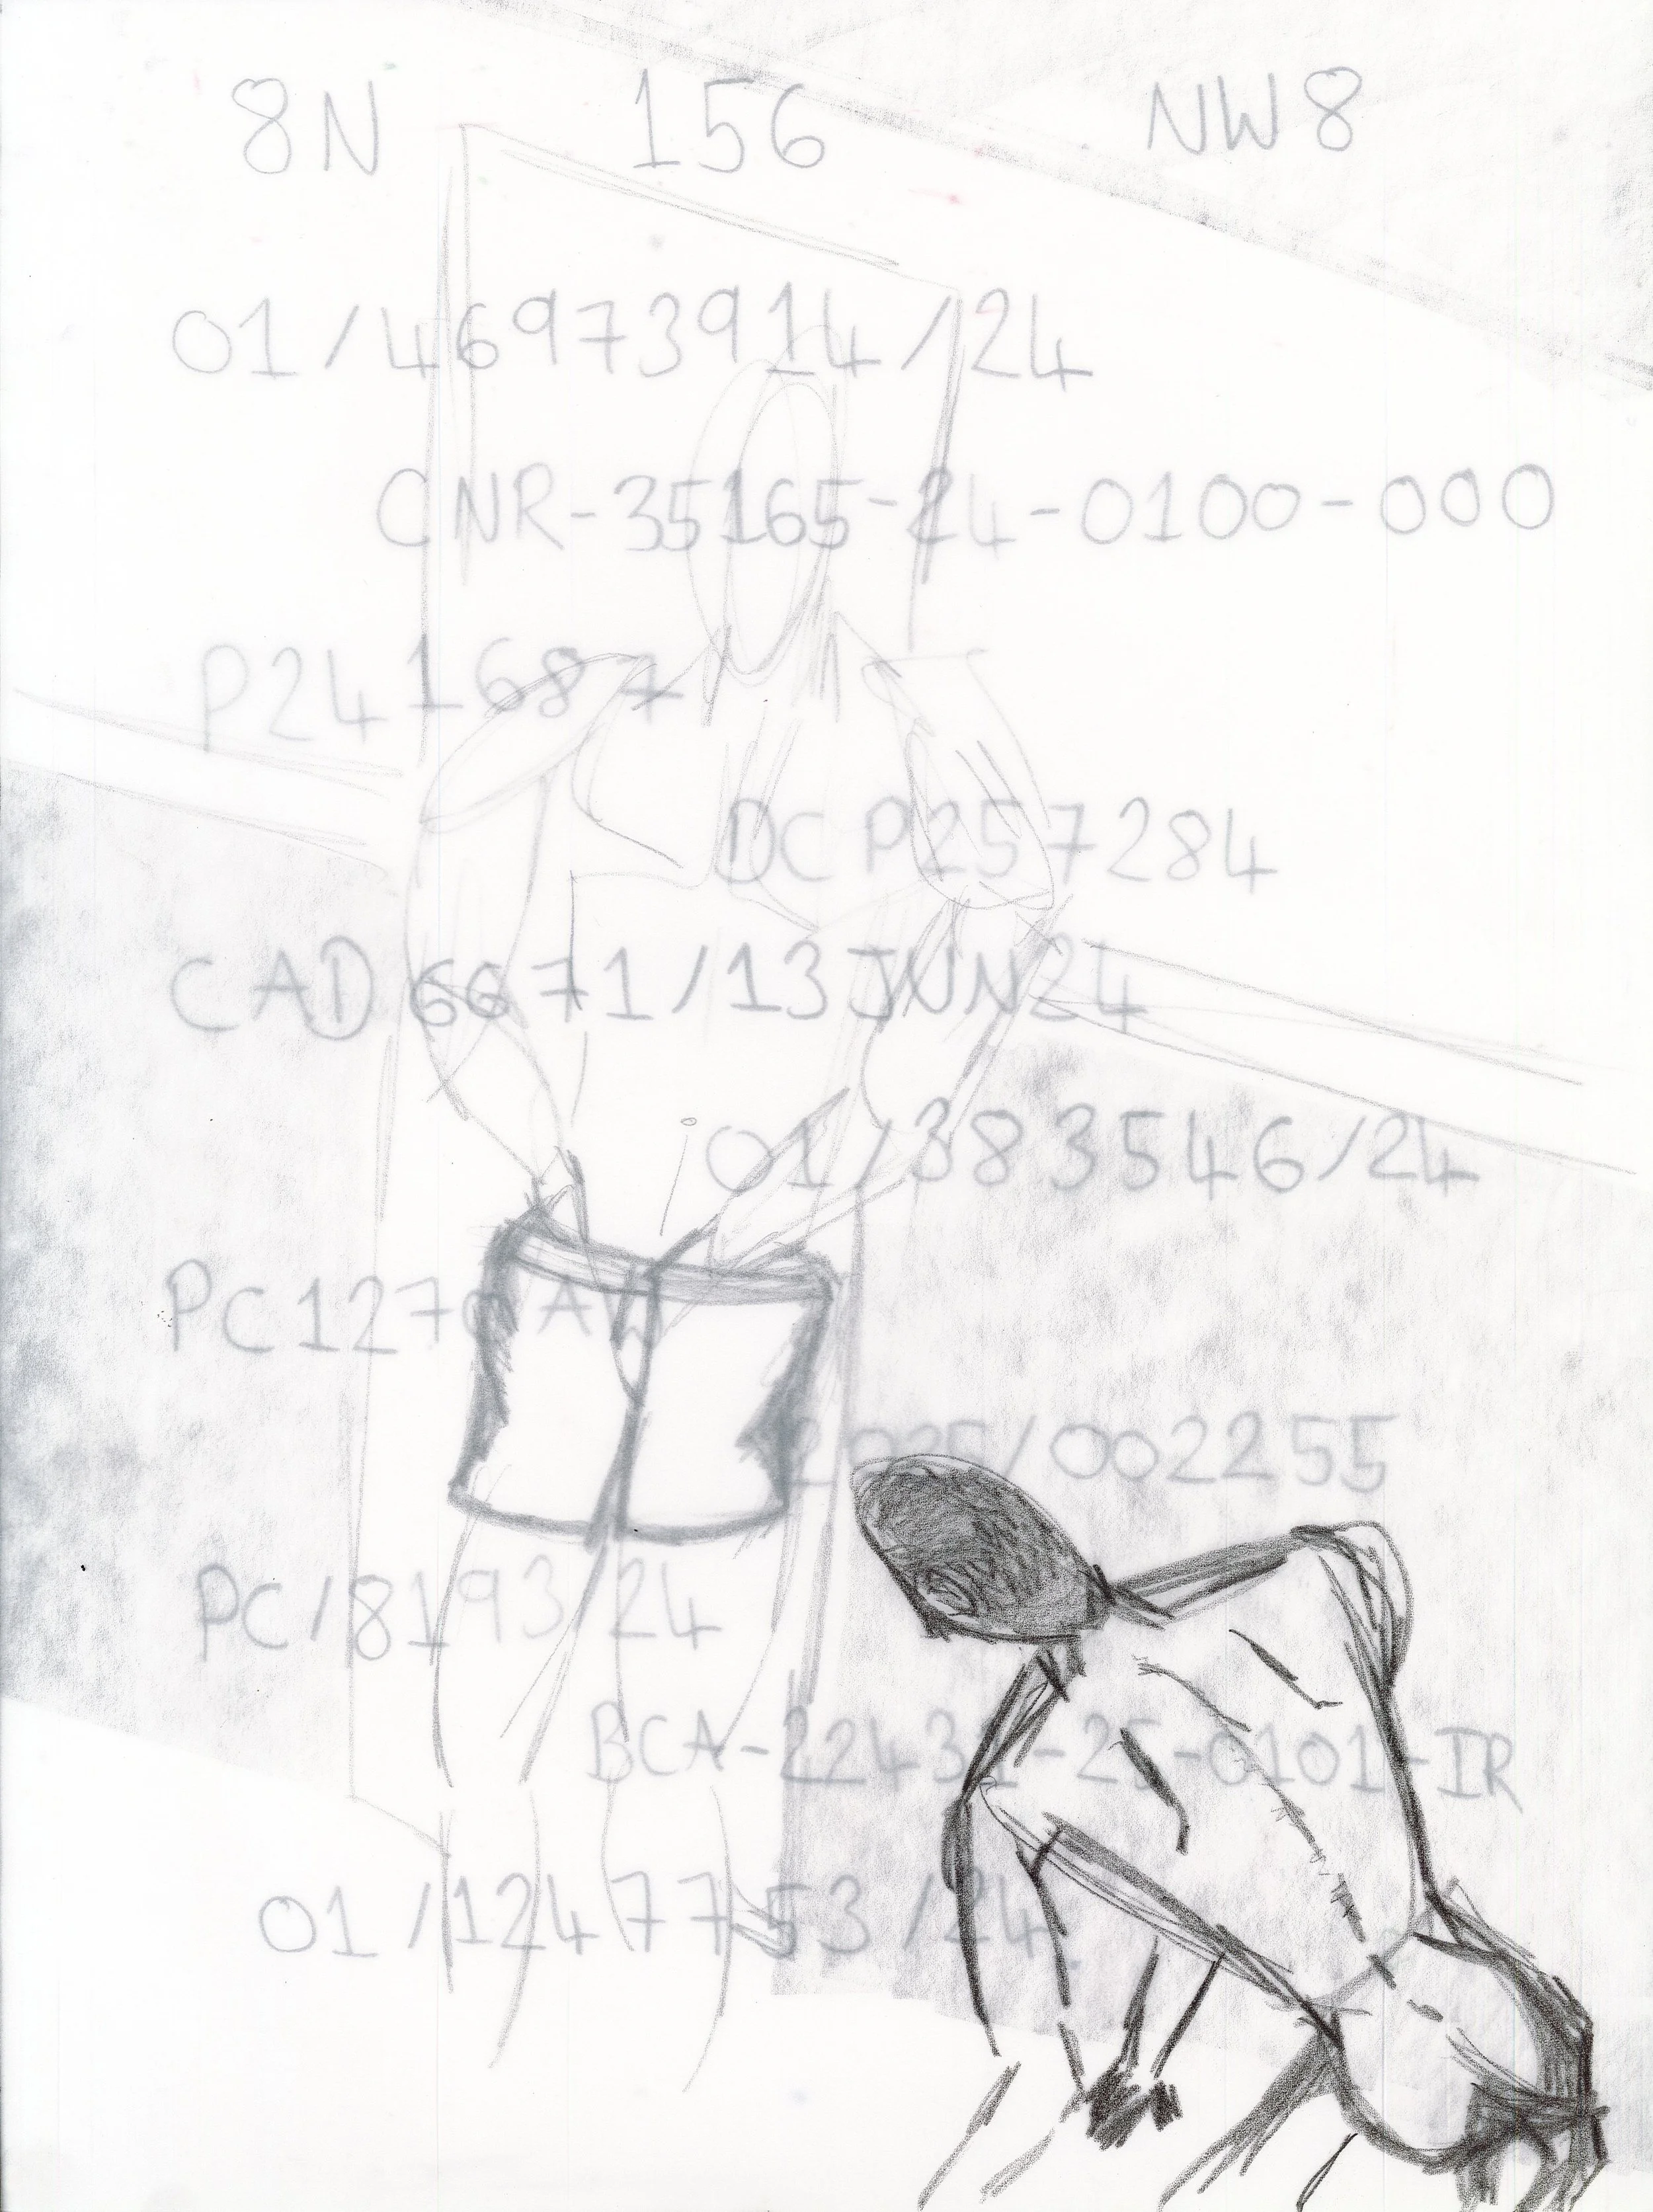 8N 156 NW8
01/46973914/24
CNR-35165-24-0100-000
P241687
DC P257284
CAD 6671/13JUN24
01/383546/24
PC1270AW
2025/002255
PC/8193/24
BCA-22431-25-0101-IR
01/1247753/24